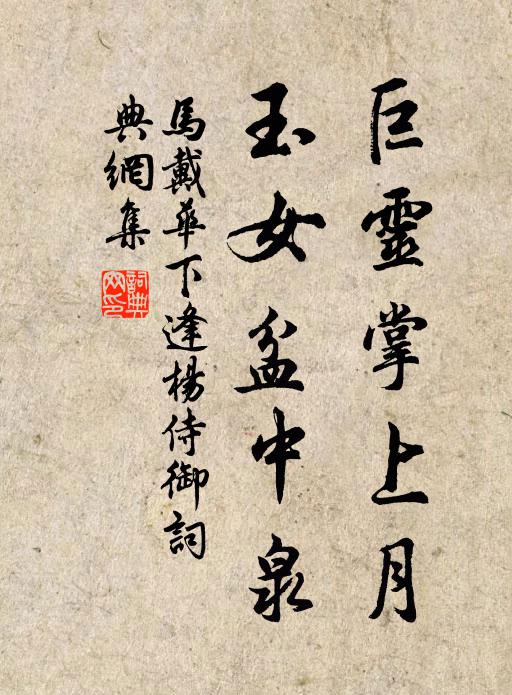 巨靈掌上月
玉女盆中泉
馬戴華下逢楊侍御詞
典網集
詞典網印